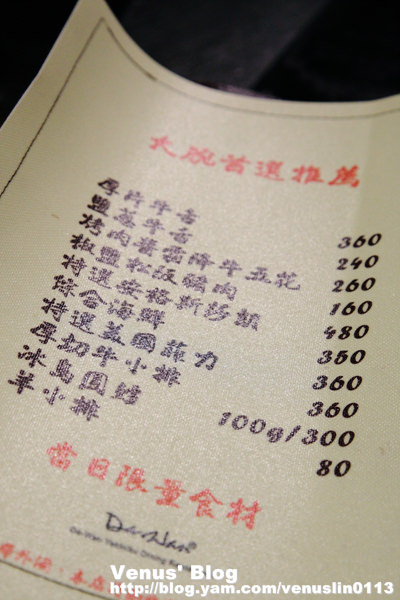 大腕首選推薦
厚片牛舌 360
鹽蔥牛舌 240
烤肉醬霜降牛五花 260
椒鹽松阪豬肉 160
特選安格斯莎朗 480
綜合海鮮 350
特選美國菲力 360
厚切牛小排 360
冰島圓鱈 100g/300
羊小排 80
當日限量食材
Da-Wan®
Da-Wan Yakiniku Dining
本店
Venus' Blog
http://blog.yam.com/venuslin0113